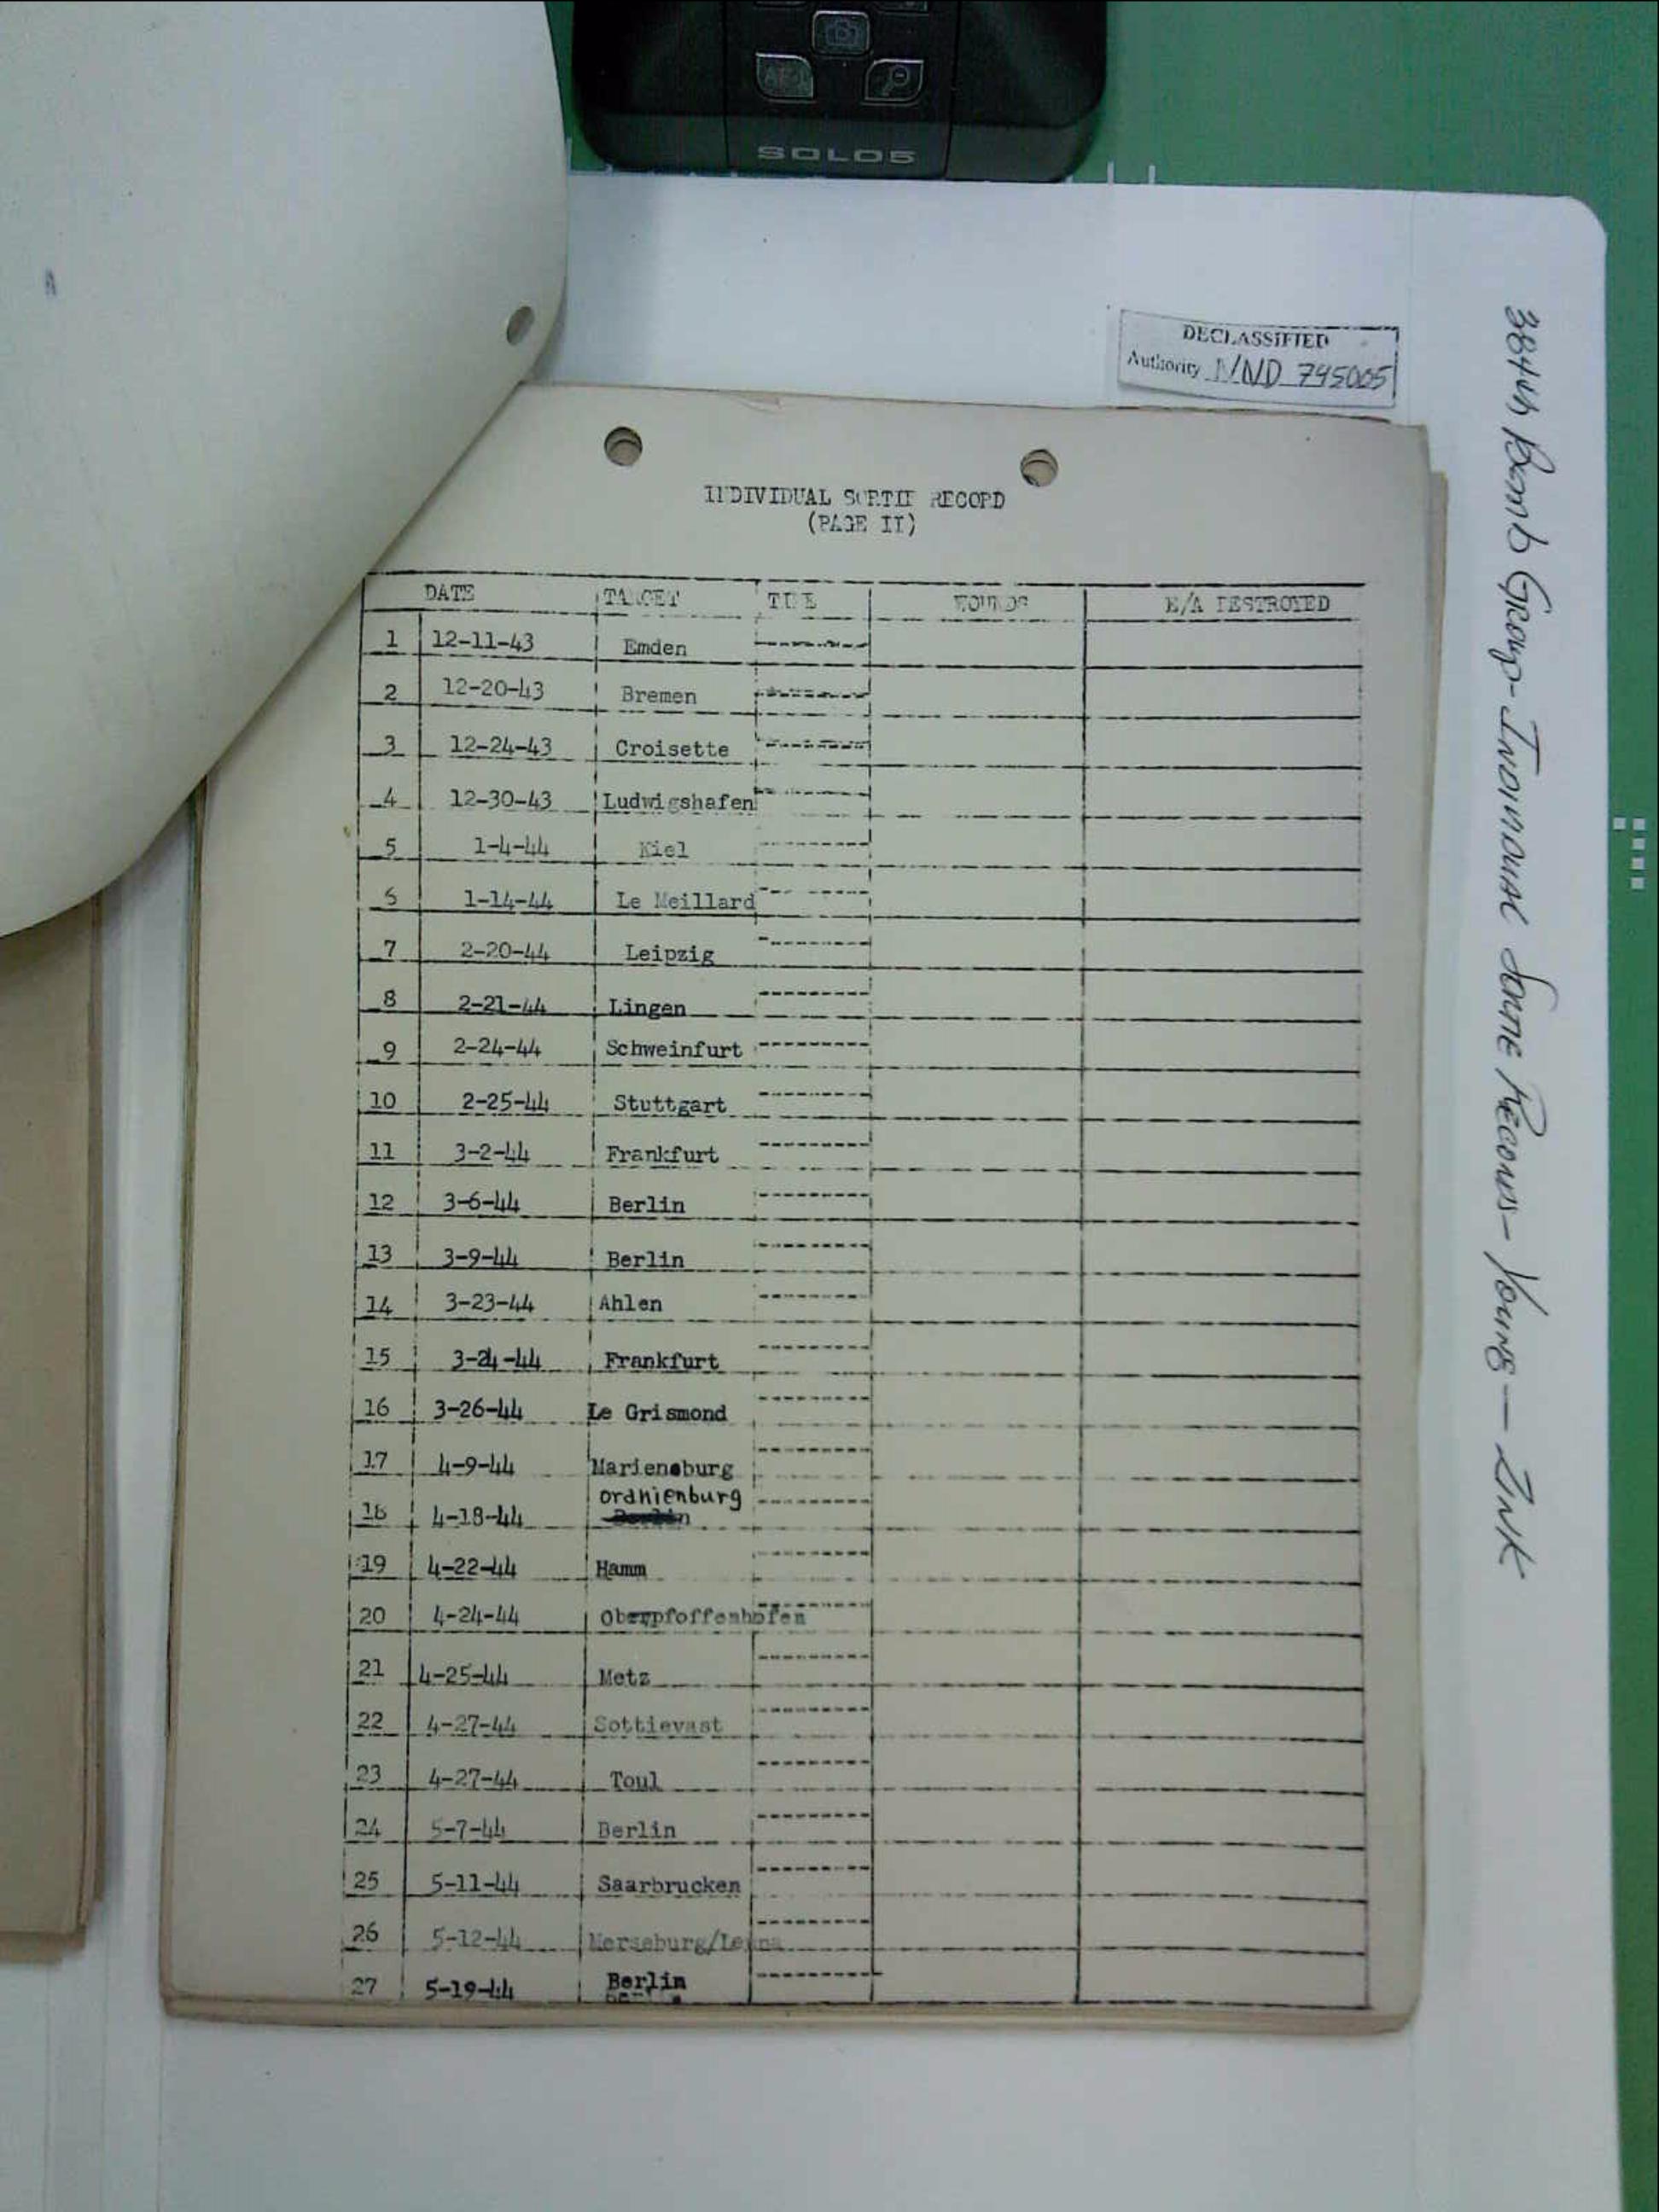 SOLO5
DECLASSIFIED
Authority NND 745005
384th Bomb Group- Individual Sortie Records- Young — Zink
INDIVIDUAL SORTIE RECORD
(PAGE II)
DATE TARGET TIME WOUNDS E/A DESTROYED
1 12-11-43 Emden
2 12-20-43 Bremen
3 12-24-43 Croisette
4 12-30-43 Ludwigshafen
5 1-4-44 Kiel
6 1-14-44 Le Meillard
7 2-20-44 Leipzig
8 2-21-44 Lingen
9 2-24-44 Schweinfurt
10 2-25-44 Stuttgart
11 3-2-44 Frankfurt
12 3-6-44 Berlin
13 3-9-44 Berlin
14 3-23-44 Ahlen
15 3-24-44 Frankfurt
16 3-26-44 Le Grismond
17 4-9-44 Marienburg
oranienburg
18 4-18-44
19 4-22-44 Hamm
20 4-24-44 Oberpfoffenhofen
21 4-25-44 Metz
22 4-27-44 Sottievast
23 4-27-44 Toul
24 5-7-44 Berlin
25 5-11-44 Saarbrucken
26 5-12-44 Merseburg/Leuna
27 5-19-44 Berlin